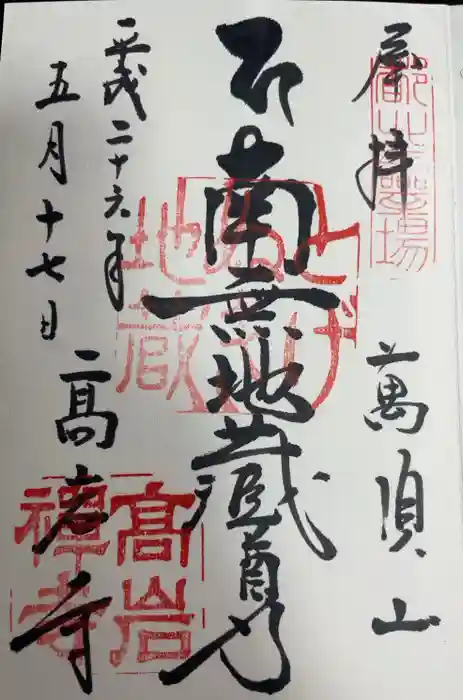 拝
萬頂山
南無地蔵尊
平成二十六年
五月十七日
高岩寺
とげ
ぬき
地蔵
高岩
禅寺